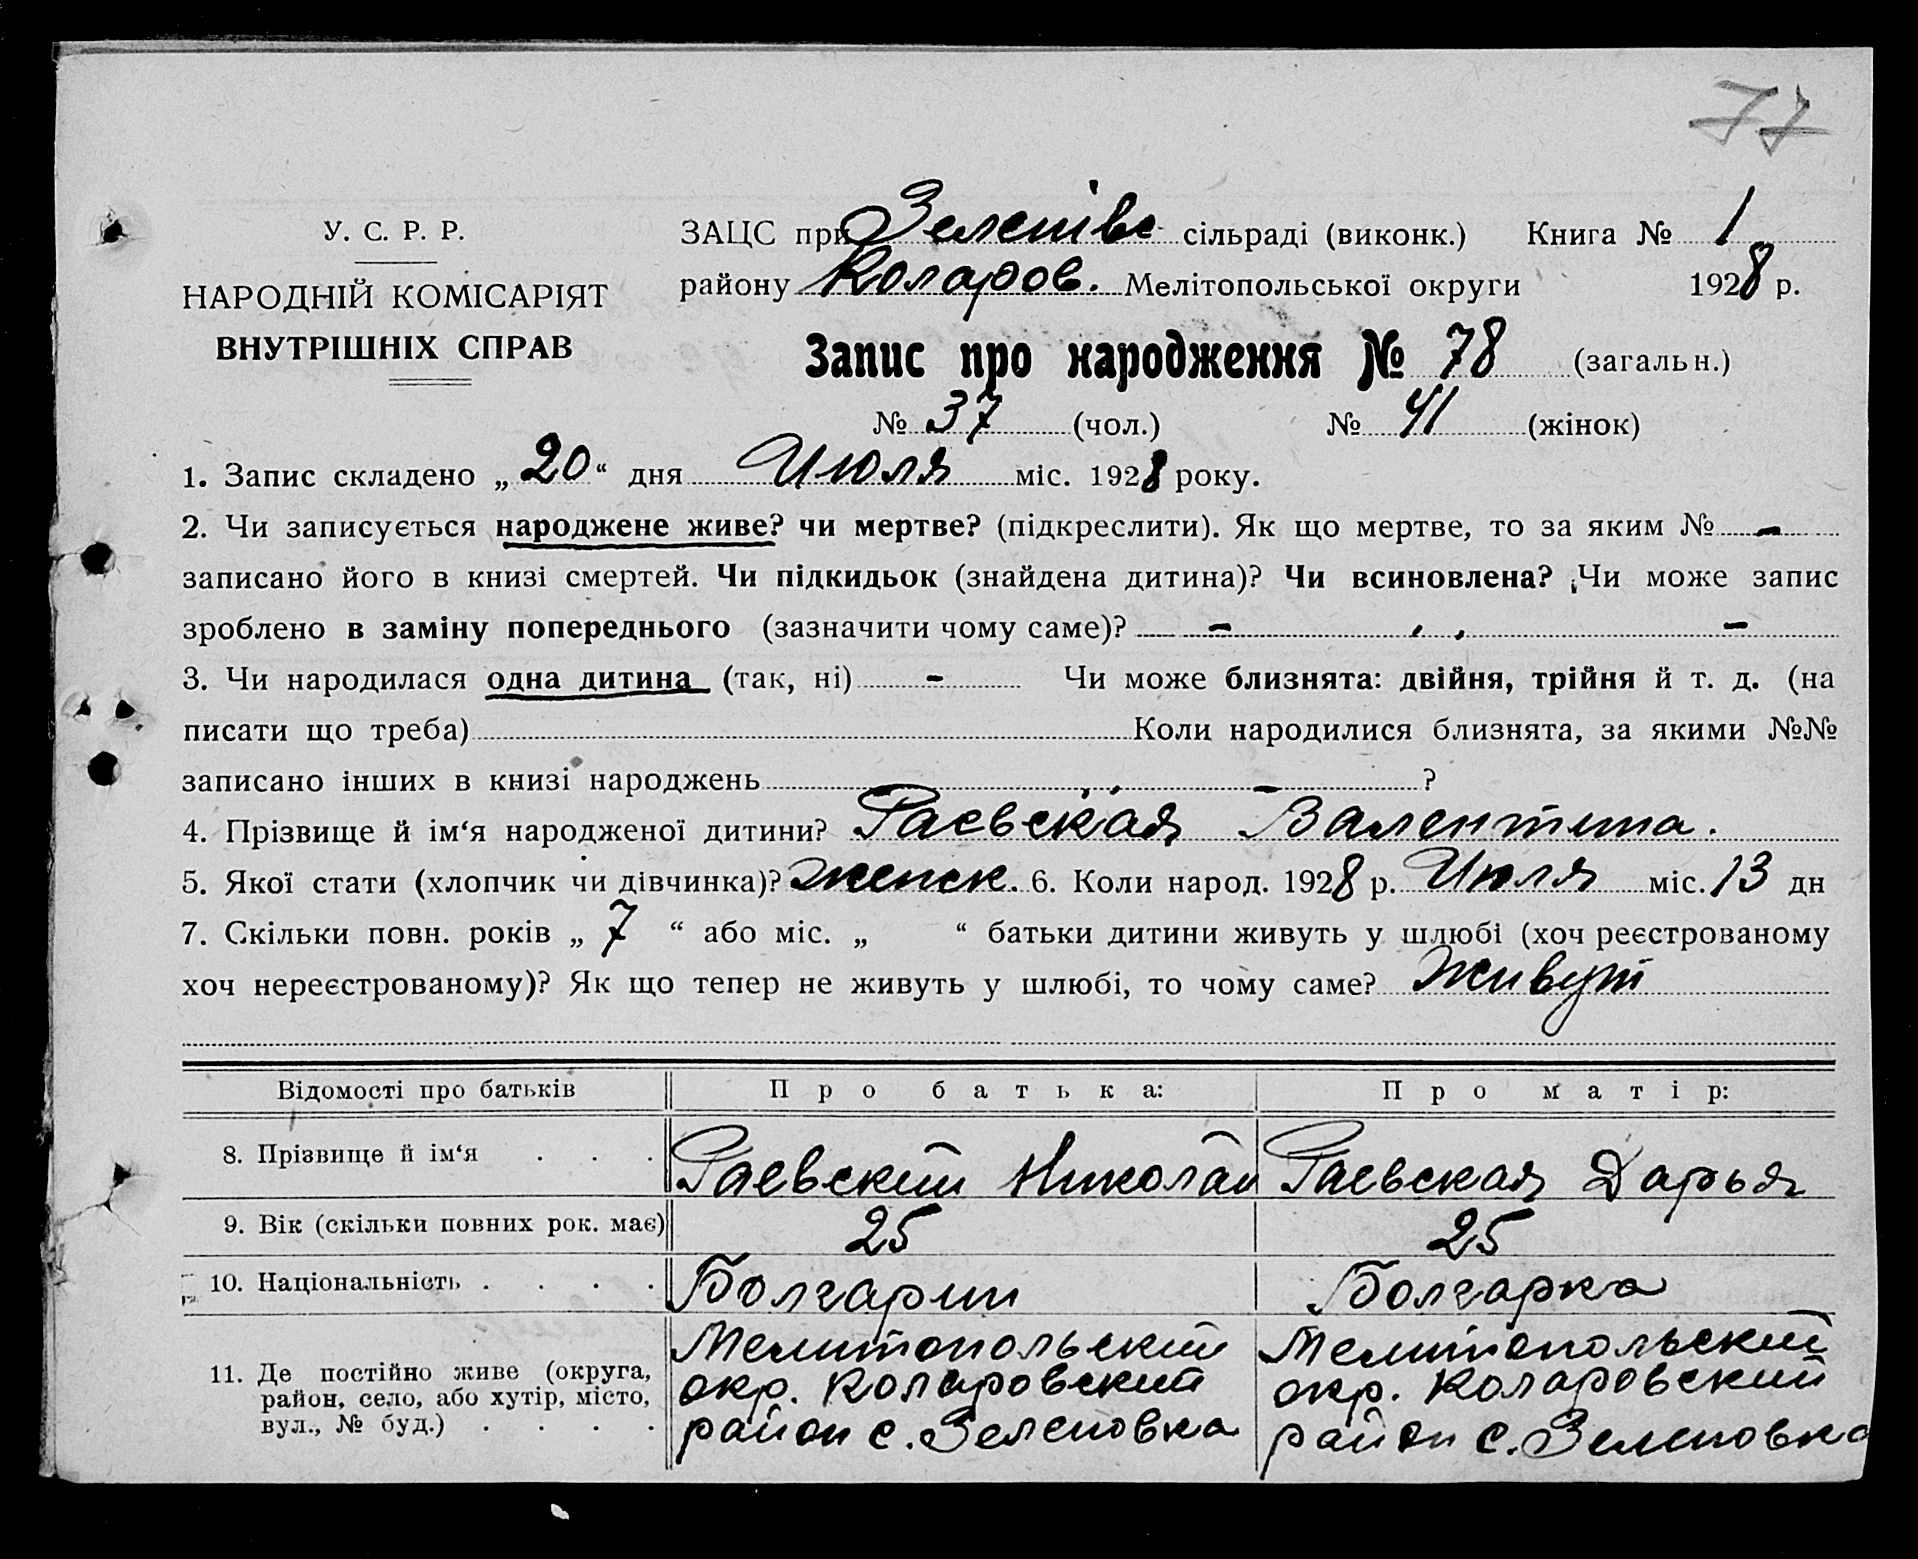 77
У. С. Р. Р.
НАРОДНІЙ КОМІСАРІЯТ
ВНУТРІШНІХ СПРАВ
ЗАЦС при Зеленівс сільраді (виконк.) Книга № 1
району Коларов. Мелітопольської округи 1928 р.
Запис про народження № 78 (загальн.)
№ 37 (чол.) № 41 (жінок)
1. Запис складено „ 20 “ дня Июля міс. 1928 року.
2. Чи записується народжене живе? чи мертве? (підкреслити). Як що мертве, то за яким № -
записано його в книзі смертей. Чи підкидьок (знайдена дитина)? Чи всиновлена? Чи може запис
зроблено в заміну попереднього (зазначити чому саме)? - , , -
3. Чи народилася одна дитина (так, ні) - Чи може близнята: двійня, трійня й т. д. (на
писати що треба) Коли народилися близнята, за якими №№
записано інших в книзі народжень - , , - ?
4. Прізвище й ім‘я народженої дитини? Раевская Валентина.
5. Якої стати (хлопчик чи дівчинка)? женск. 6. Коли народ. 1928 р. Июля міс. 13 дн
7. Скільки повн. років „ 7 “ або міс. „ “ батьки дитини живуть у шлюбі (хоч реєстрованому
хоч нереєстрованому)? Як що тепер не живуть у шлюбі, то чому саме? Живут
Відомості про батьків Про батька: Про матір:
8. Прізвище й ім‘я . . . Раевский Николай Раевская Дарья
9. Вік (скільки повних рок. має) 25 25
10. Національність . . . . Болгарин Болгарка
11. Де постійно живе (округа, район, село, або хутір, місто, вул., № буд.) . . . .
Мелитопольский
окр. Коларовский
район с. Зеленовка
Мелитопольский
окр. Коларовский
район с. Зеленовка